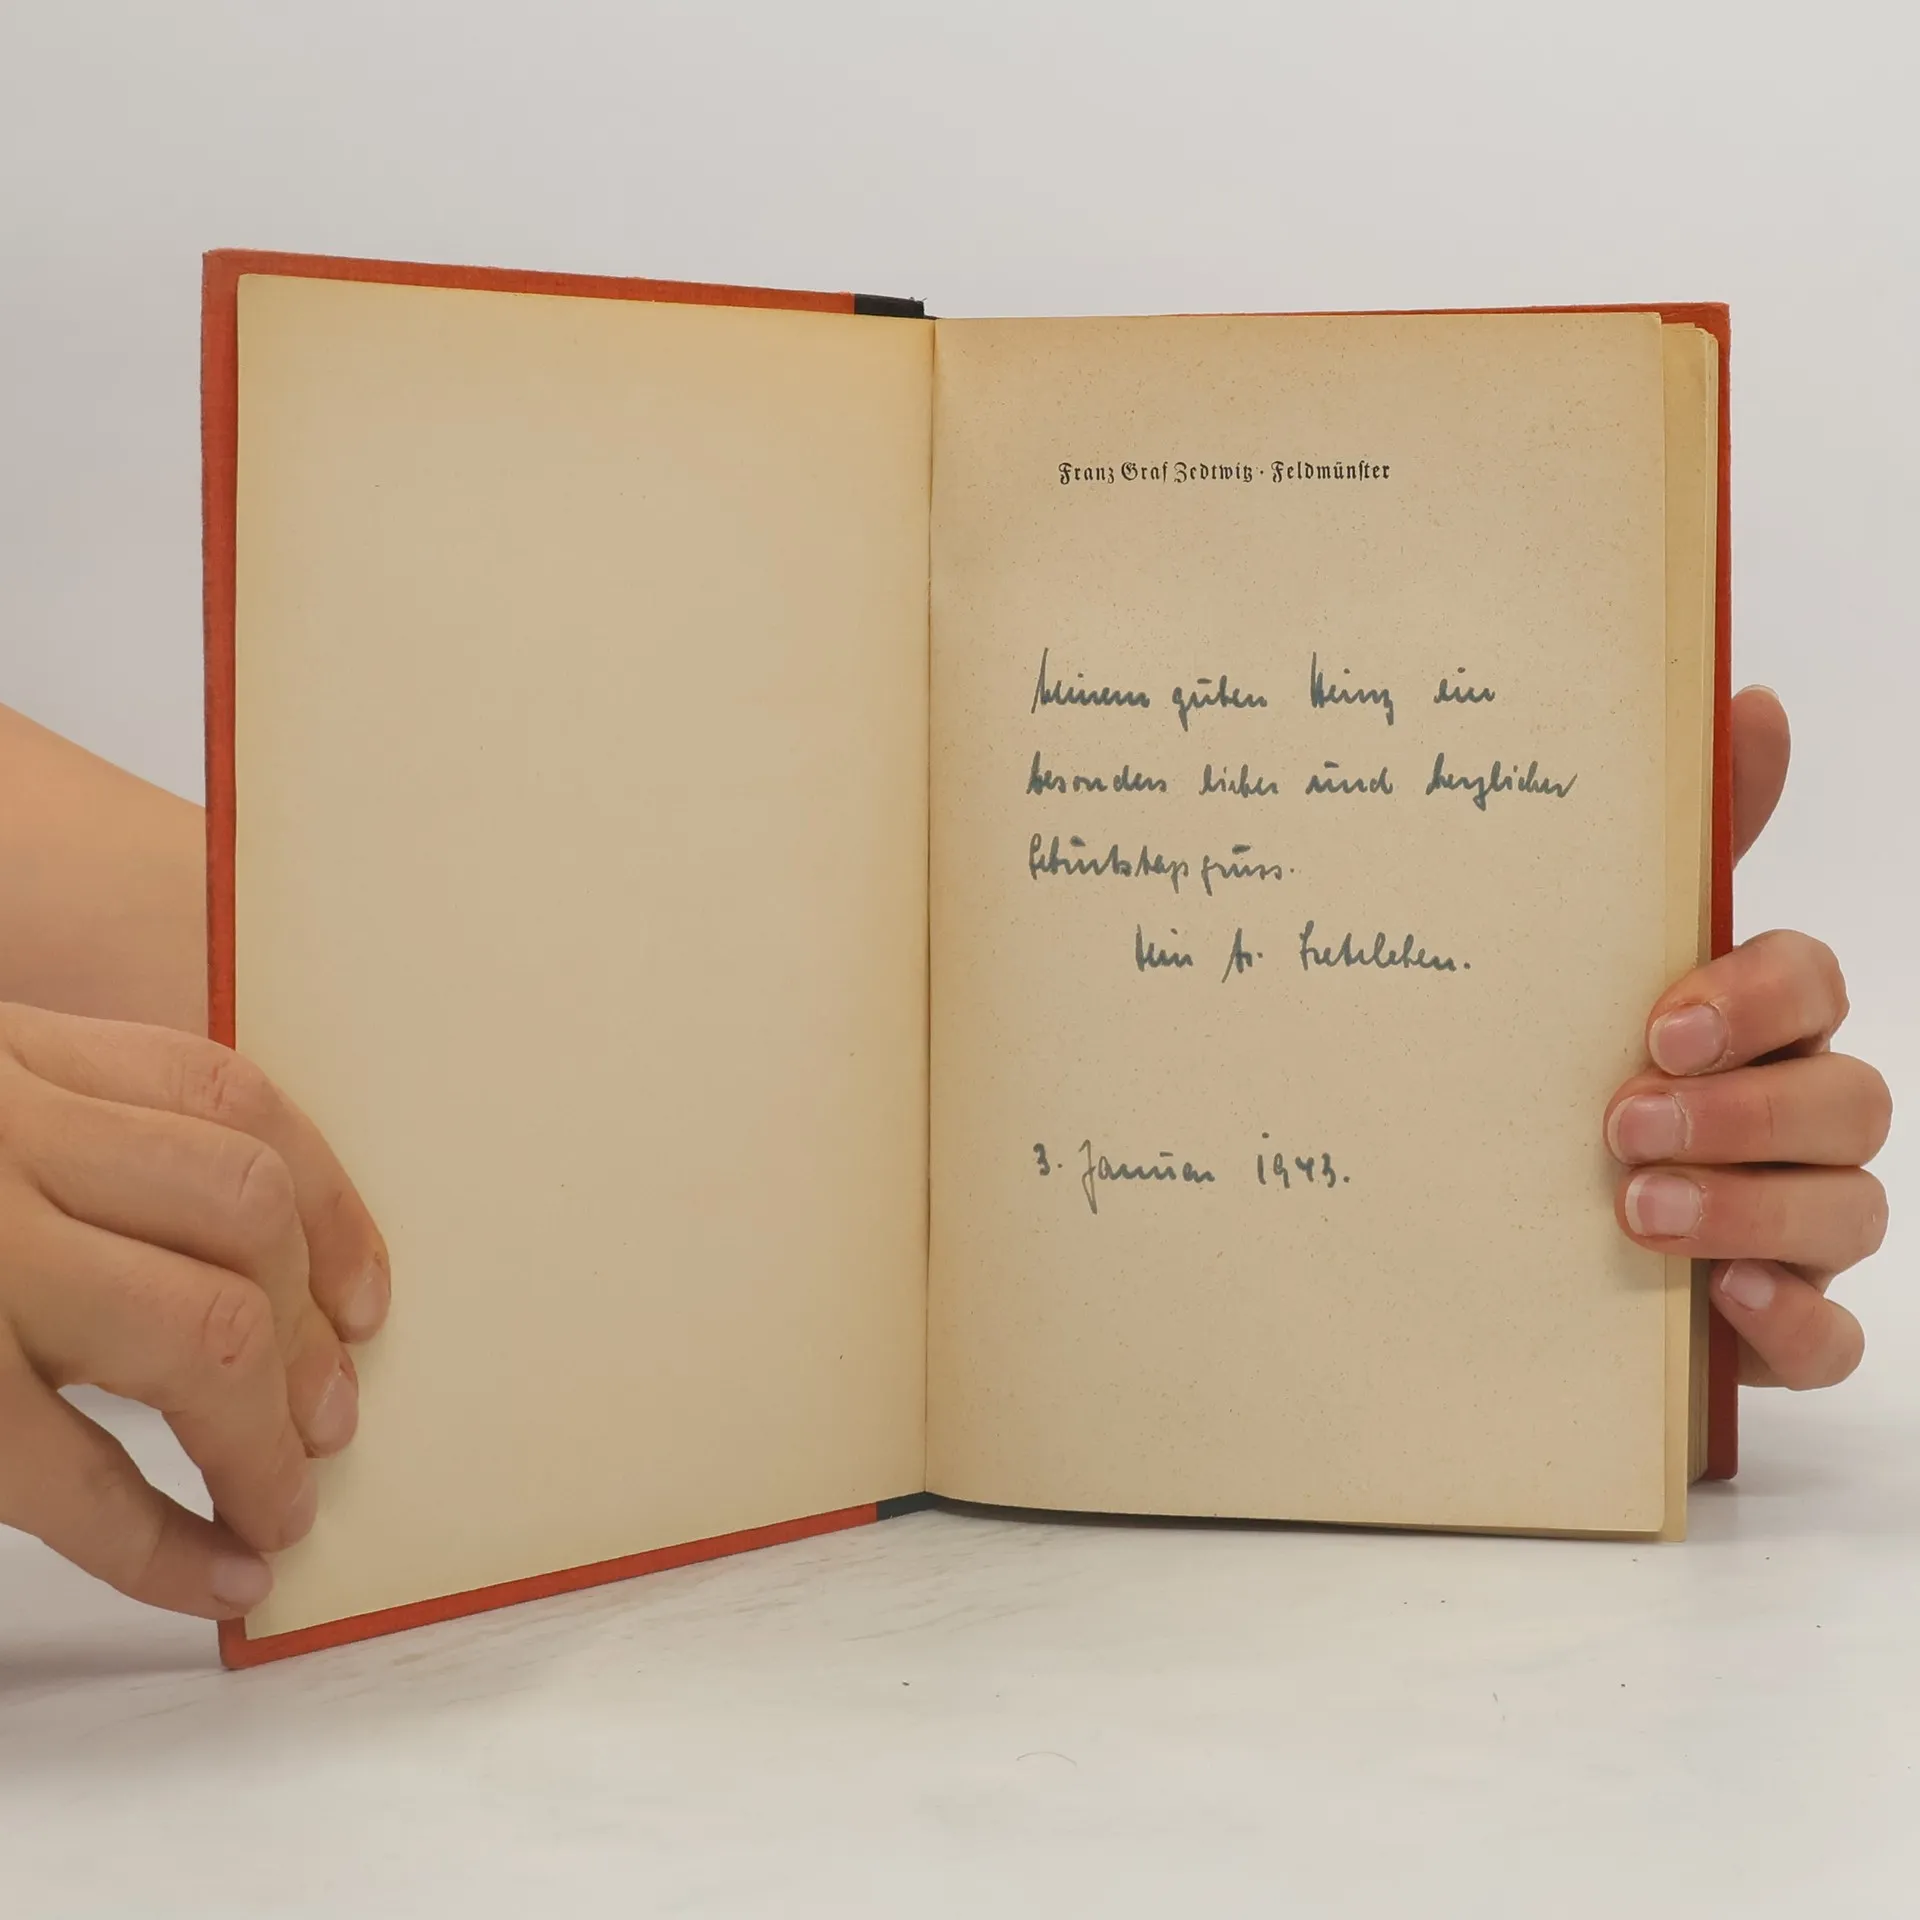 Franz Graf Zedtwitz · Feldmünster
Meinem guten Heinz ein
besonders lieber und herzlicher
Geburtstagsgruss.
Dein
3. Januar 1943.